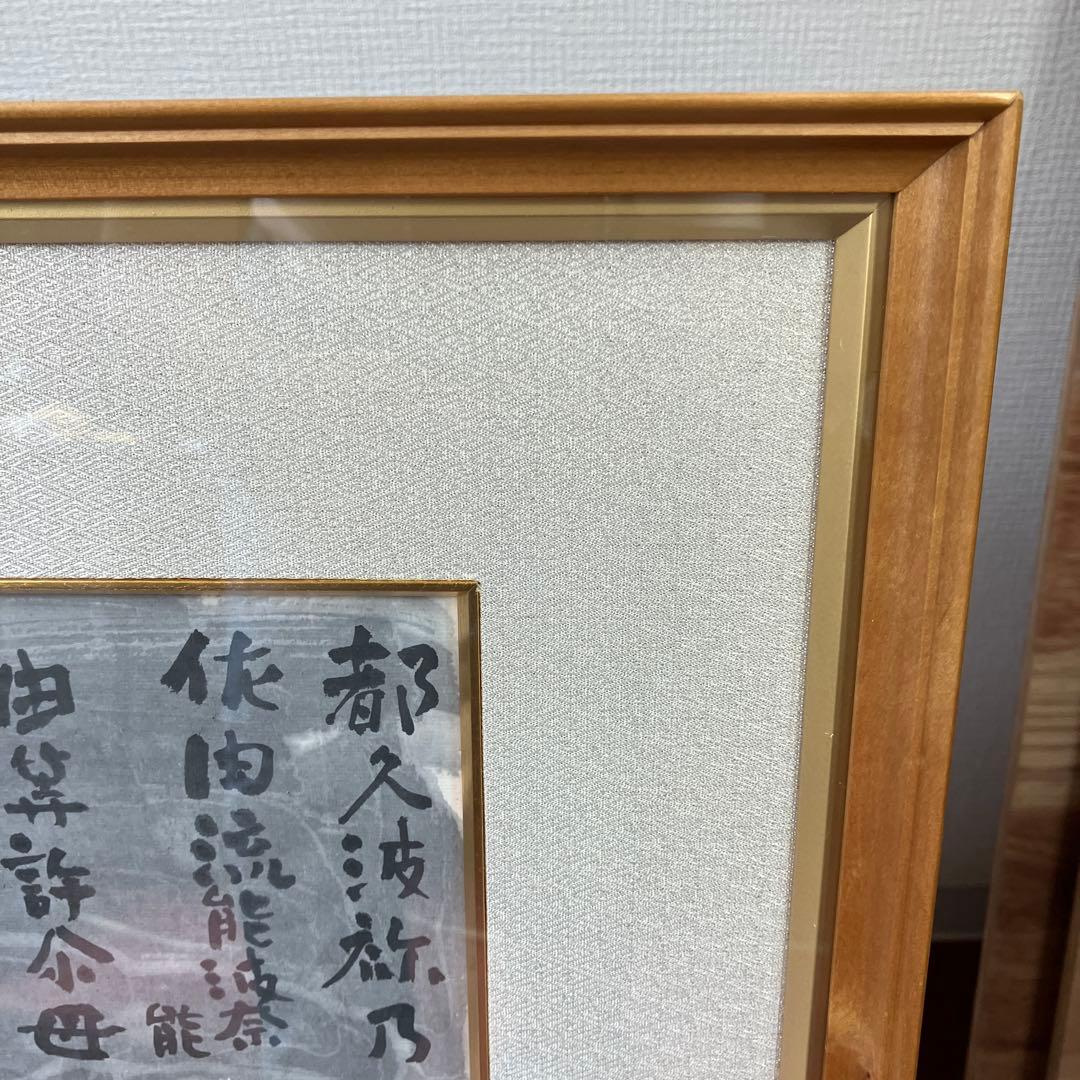 都久波祢乃
佐由流能波奈
能
由等許尒母